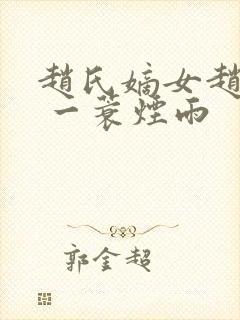 趙氏嫡女趙
一蓑煙雨
郭金超